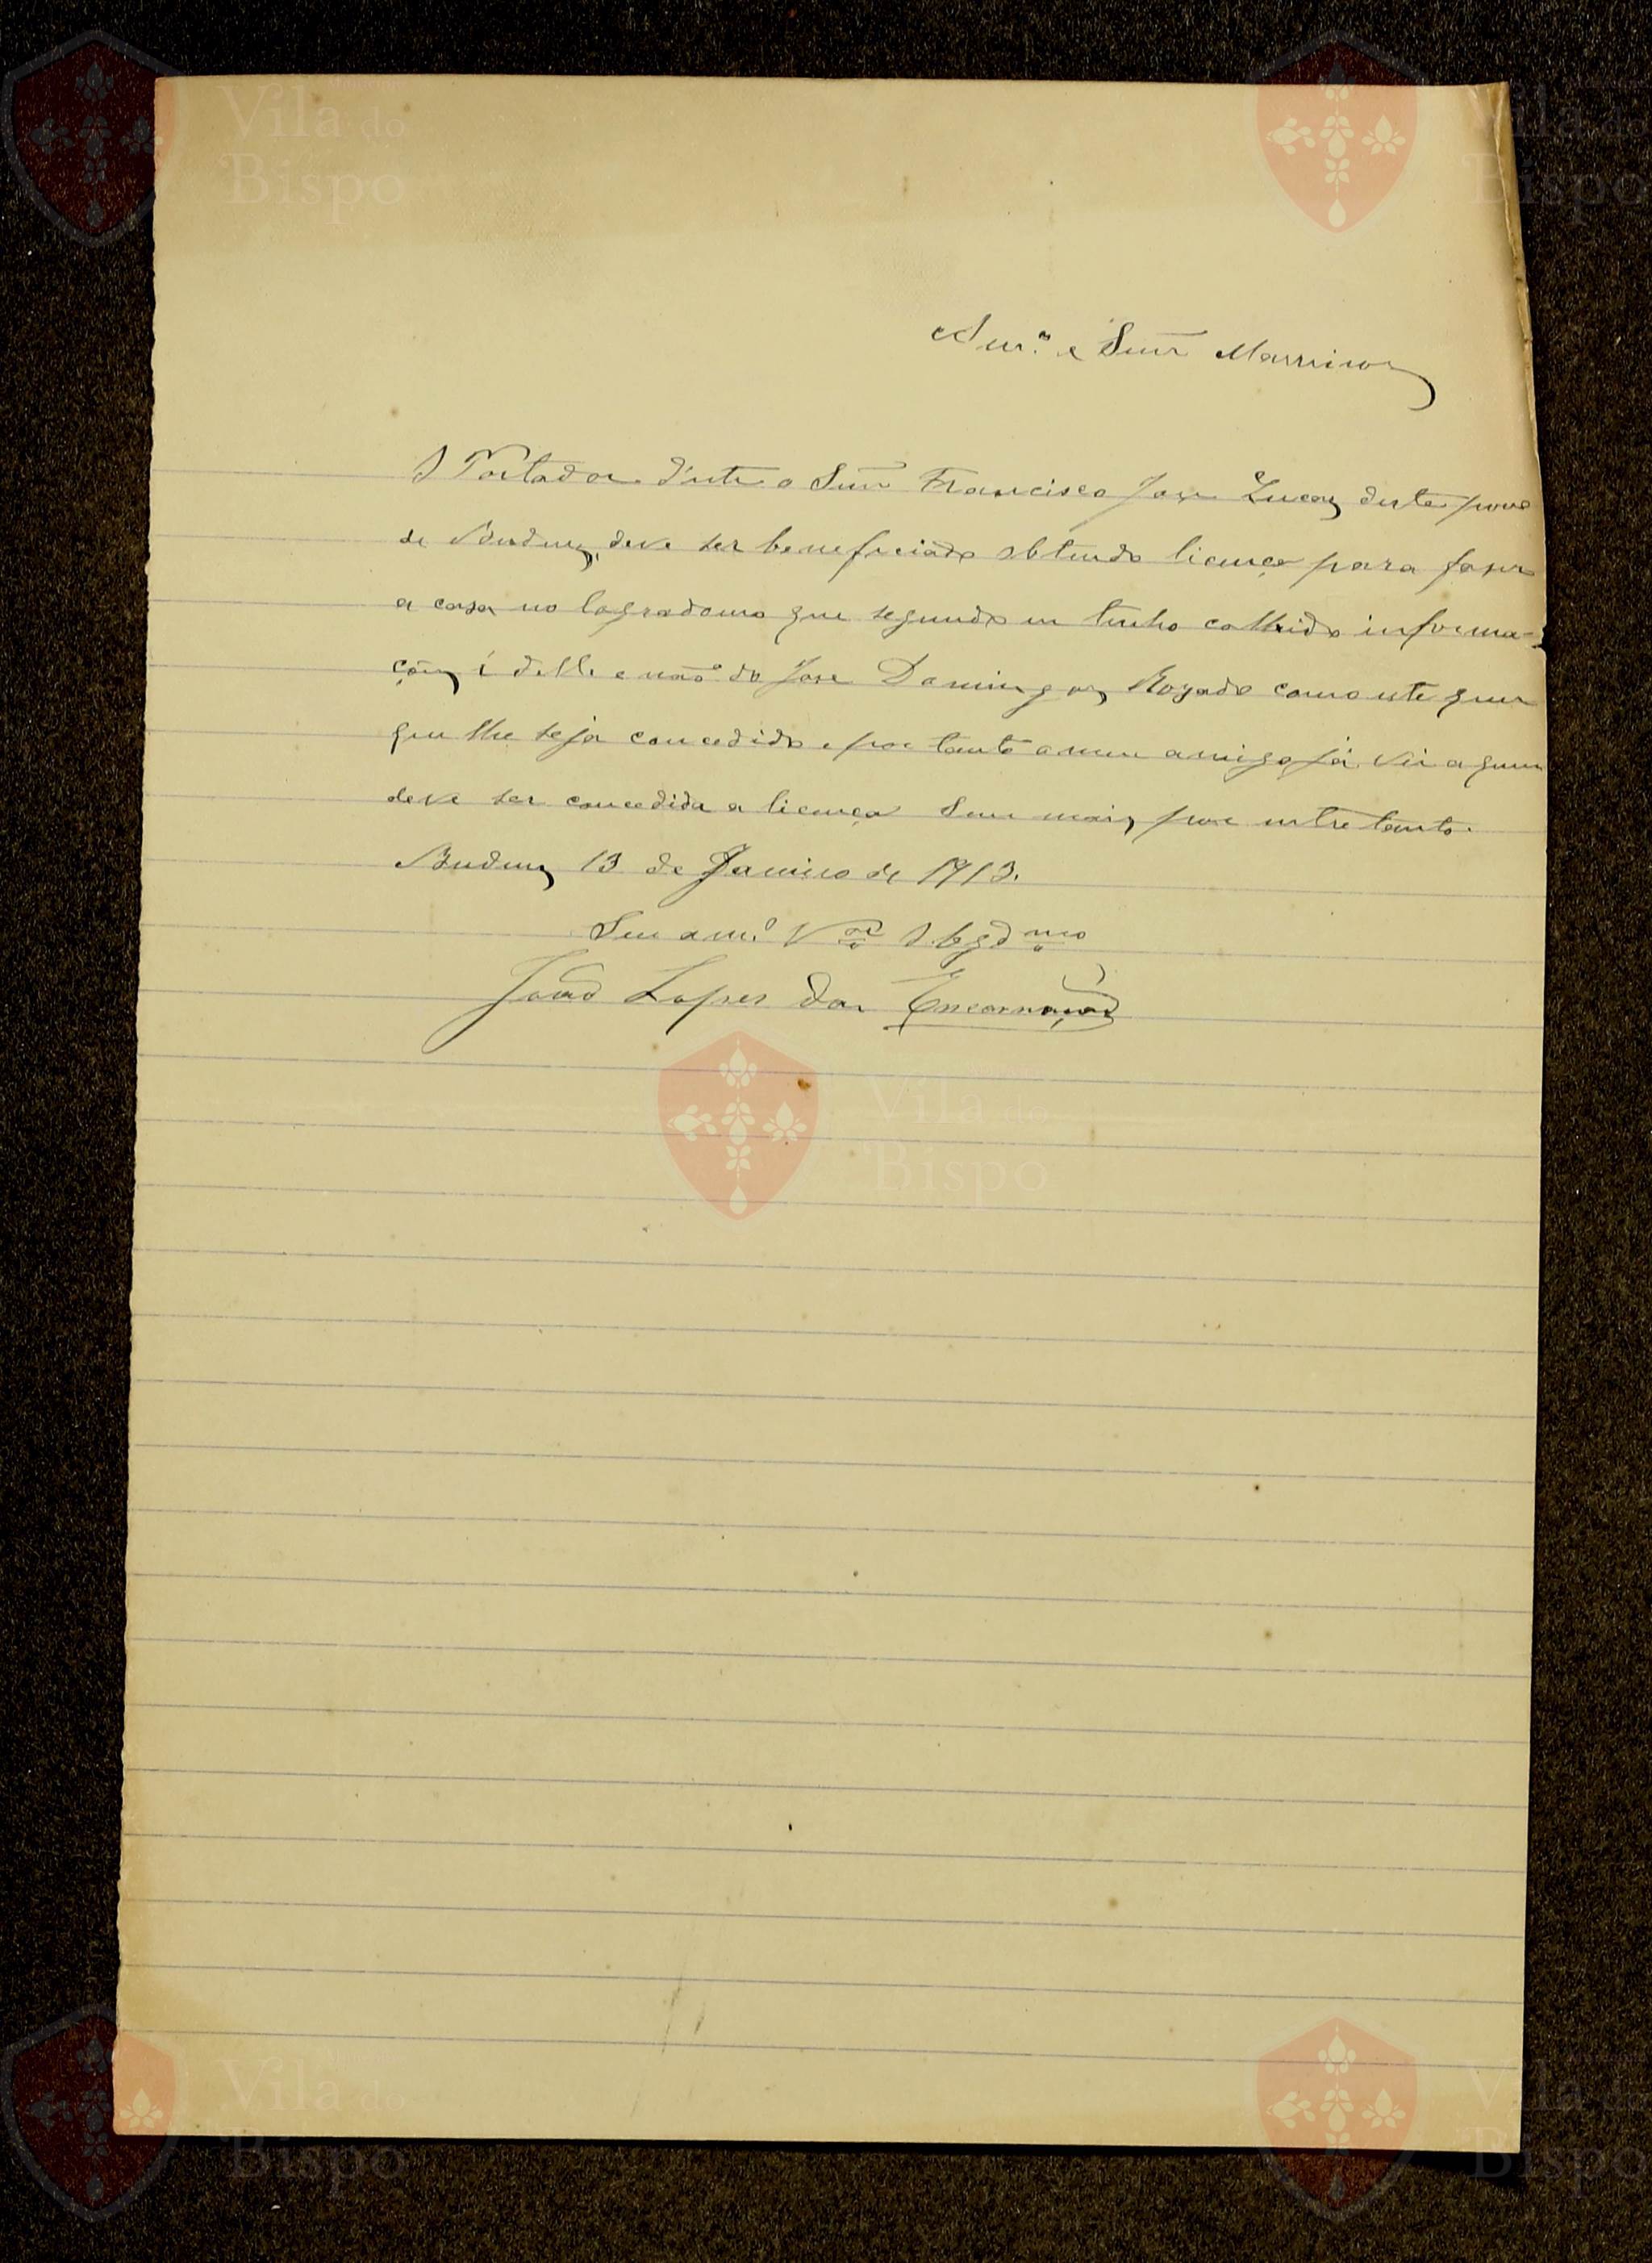 Am.º e Snr Marreiros
O Portador d'este o Snr Francisco Jose Lucas deste povo
de Budens, deve ser beneficiado obtendo licença para faser
a casa no logradouro que segundo eu tenho colhido informa-
ções é delle e não do Jose Domingos Rogado como este quer
que lhe seja concedido e por tanto o meu amigo já vê a quem
deve ser concedida a licença Sem mais por entretanto.
Budens 13 de Janeiro de 1913.
Seu am.º Vor Obgdmo
João Lopes da Encarnação
Vila do Bispo
Vila do Bispo
Vila do Bispo
Vila do Bispo
Vila do Bispo